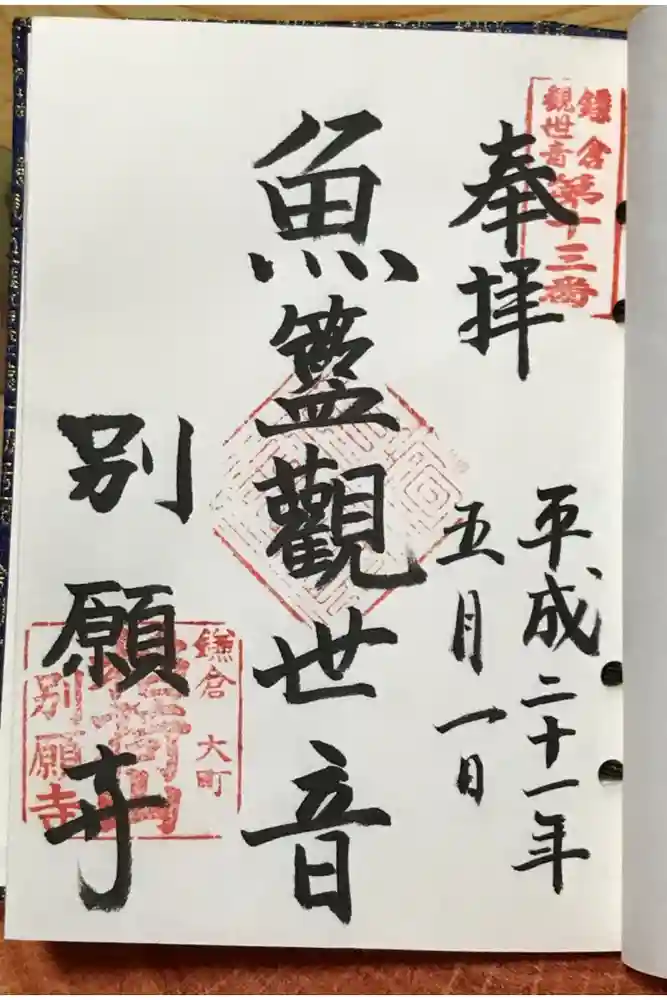 鎌倉
観世音
第十三番
奉拝
平成二十一年
五月一日
魚籃觀世音
別願寺
鎌倉 大町
別願寺